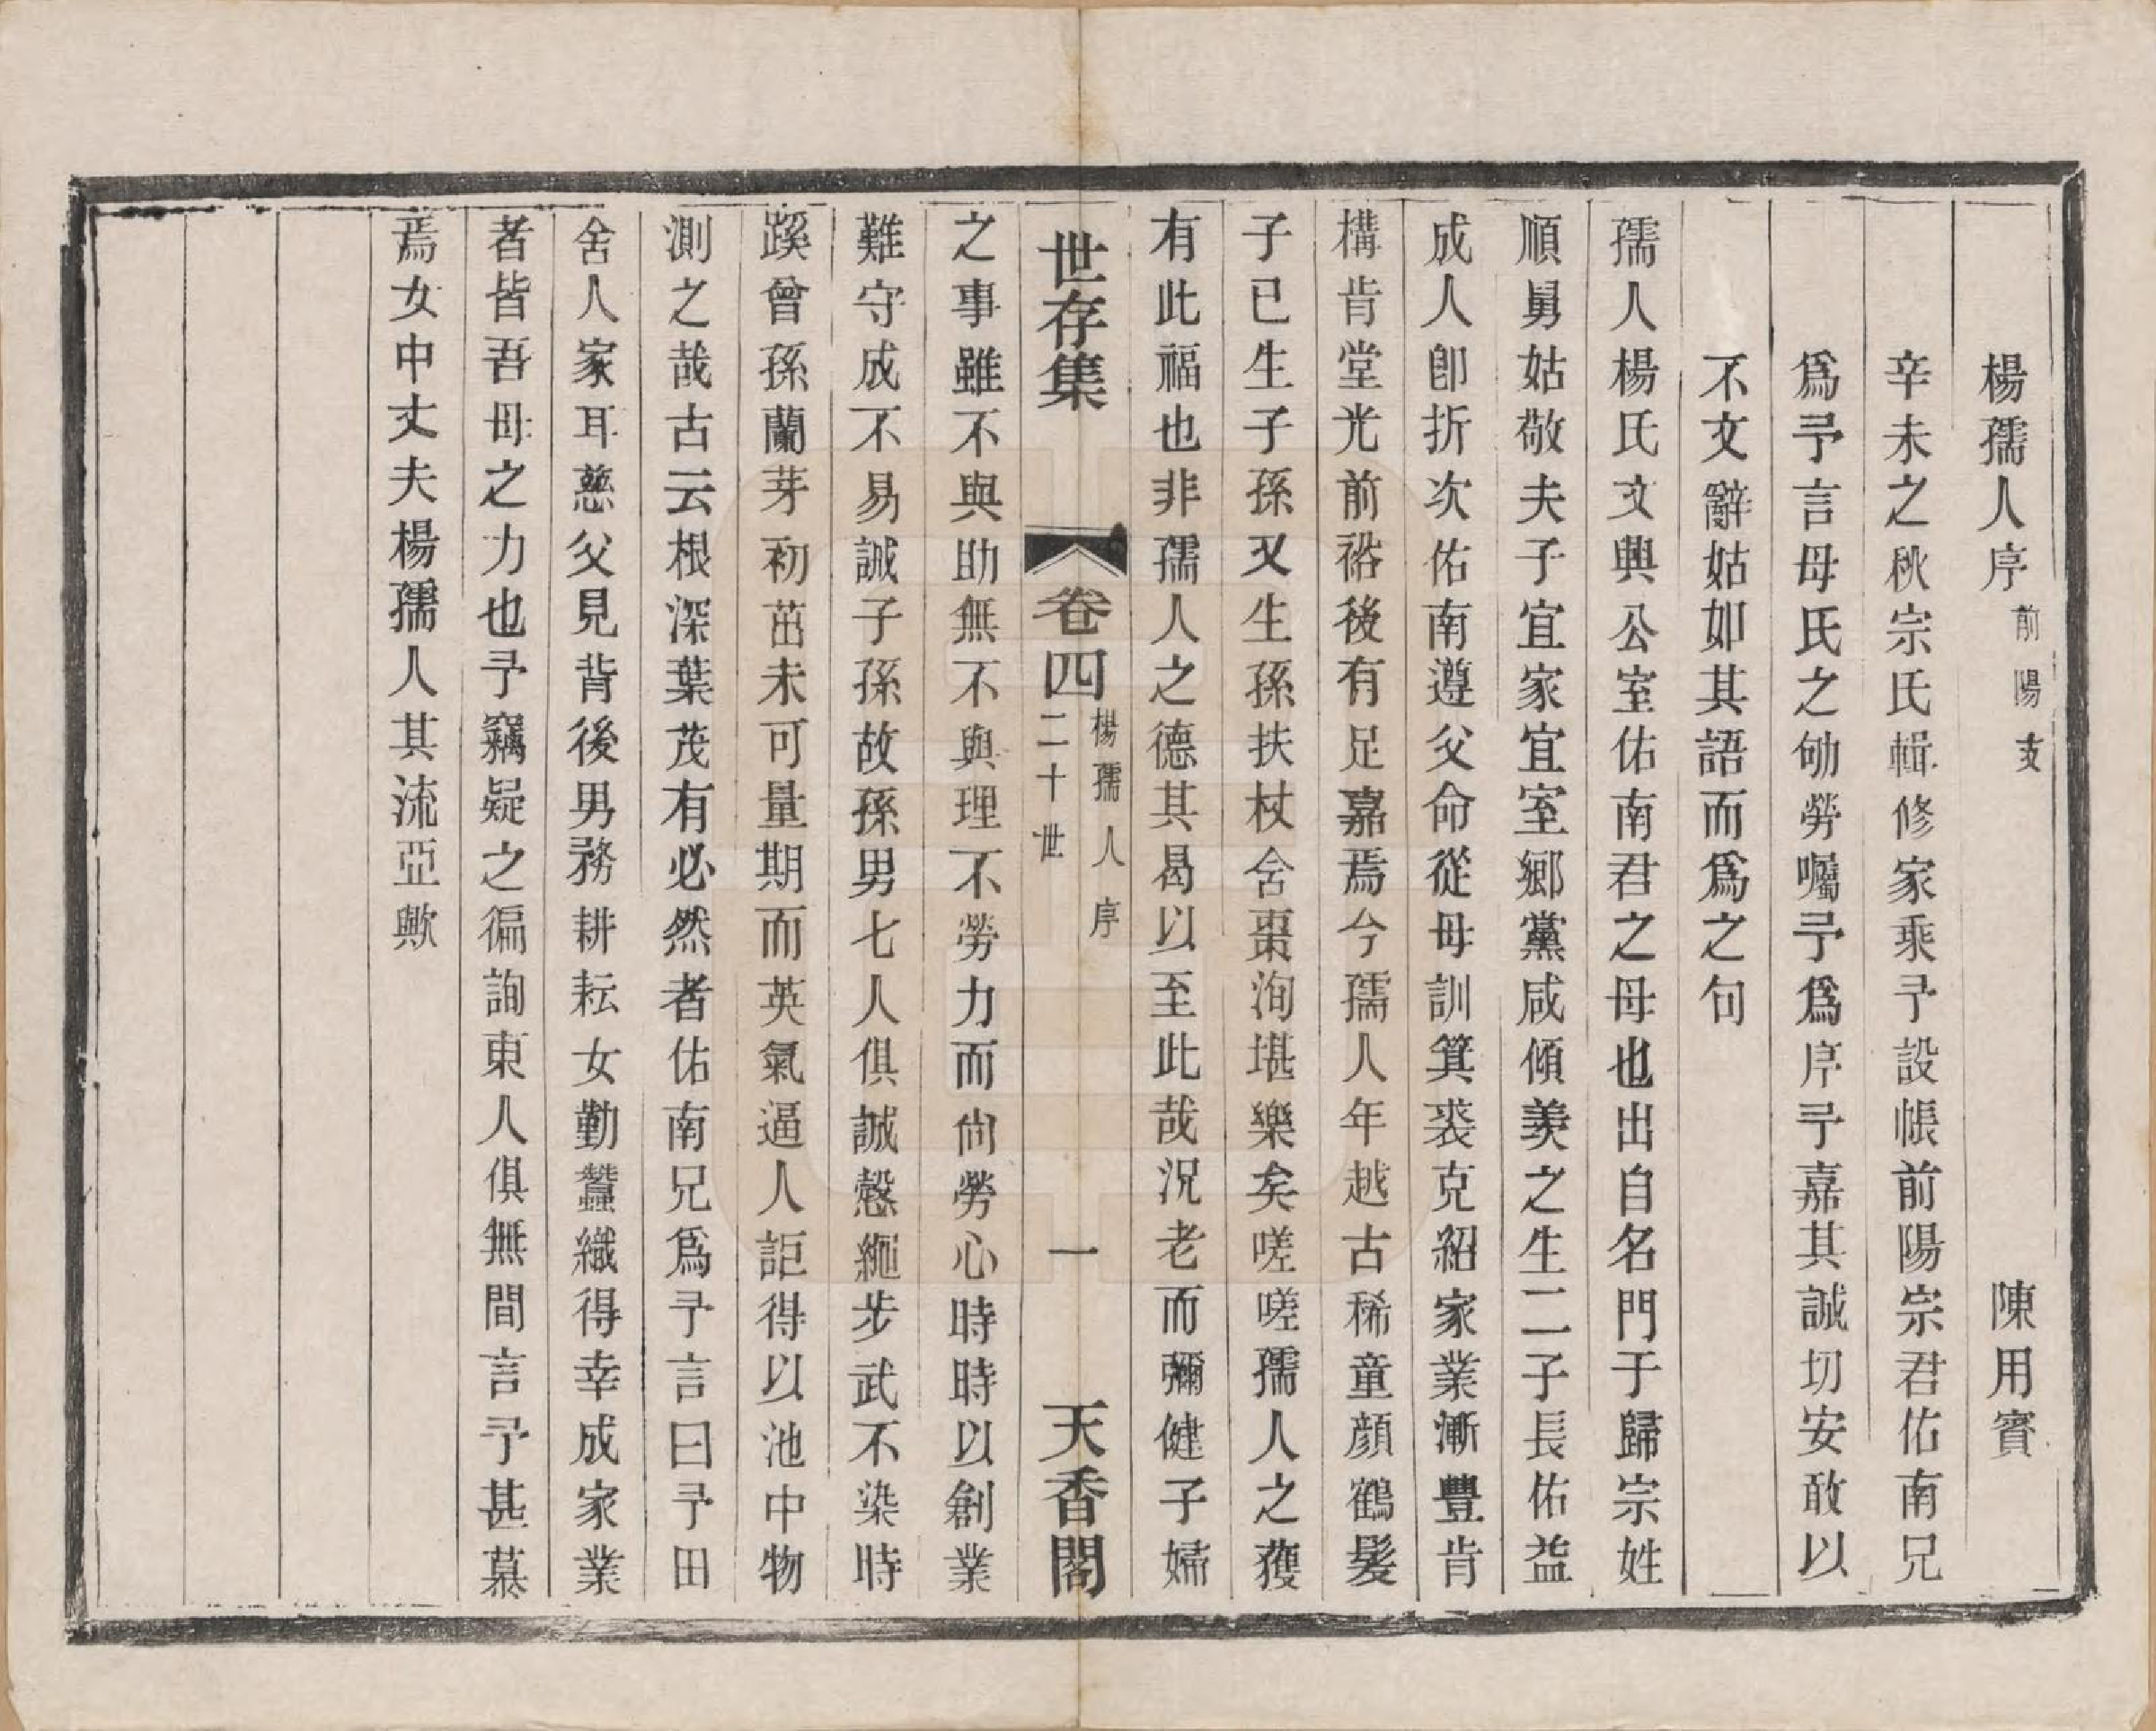 楊孺人序 前陽支 陳用賓
辛未之秋宗氏輯修家乘予設帳前陽宗君佑南兄
爲予言母氏之劬勞囑予爲序予嘉其誠切安敢以
不文辭姑如其語而爲之句
孺人楊氏文興公室佑南君之母也出自名門于歸宗姓
順舅姑敬夫子宜家宜室鄉黨咸傾羨之生二子長佑益
成人卽折次佑南遵父命從母訓箕裘克紹家業漸豐肯
構肯堂光前裕後有足嘉焉今孺人年越古稀童顔鶴髮
子已生子孫又生孫扶杖含棗洵堪樂矣嗟嗟孺人之獲
有此福也非孺人之德其曷以至此哉況老而彌健子婦
世存集 卷四 楊孺人序 二十世 一 天香閣
之事雖不與助無不與理不勞力而尙勞心時時以創業
難守成不易誡子孫故孫男七人俱誠慤繩步武不染時
蹊曾孫蘭芽初茁未可量期而英氣逼人詎得以池中物
測之哉古云根深葉茂有必然者佑南兄爲予言曰予田
舍人家耳慈父見背後男務耕耘女勤蠶織得幸成家業
者皆吾母之力也予竊疑之徧詢東人俱無間言予甚慕
焉女中丈夫楊孺人其流亞歟